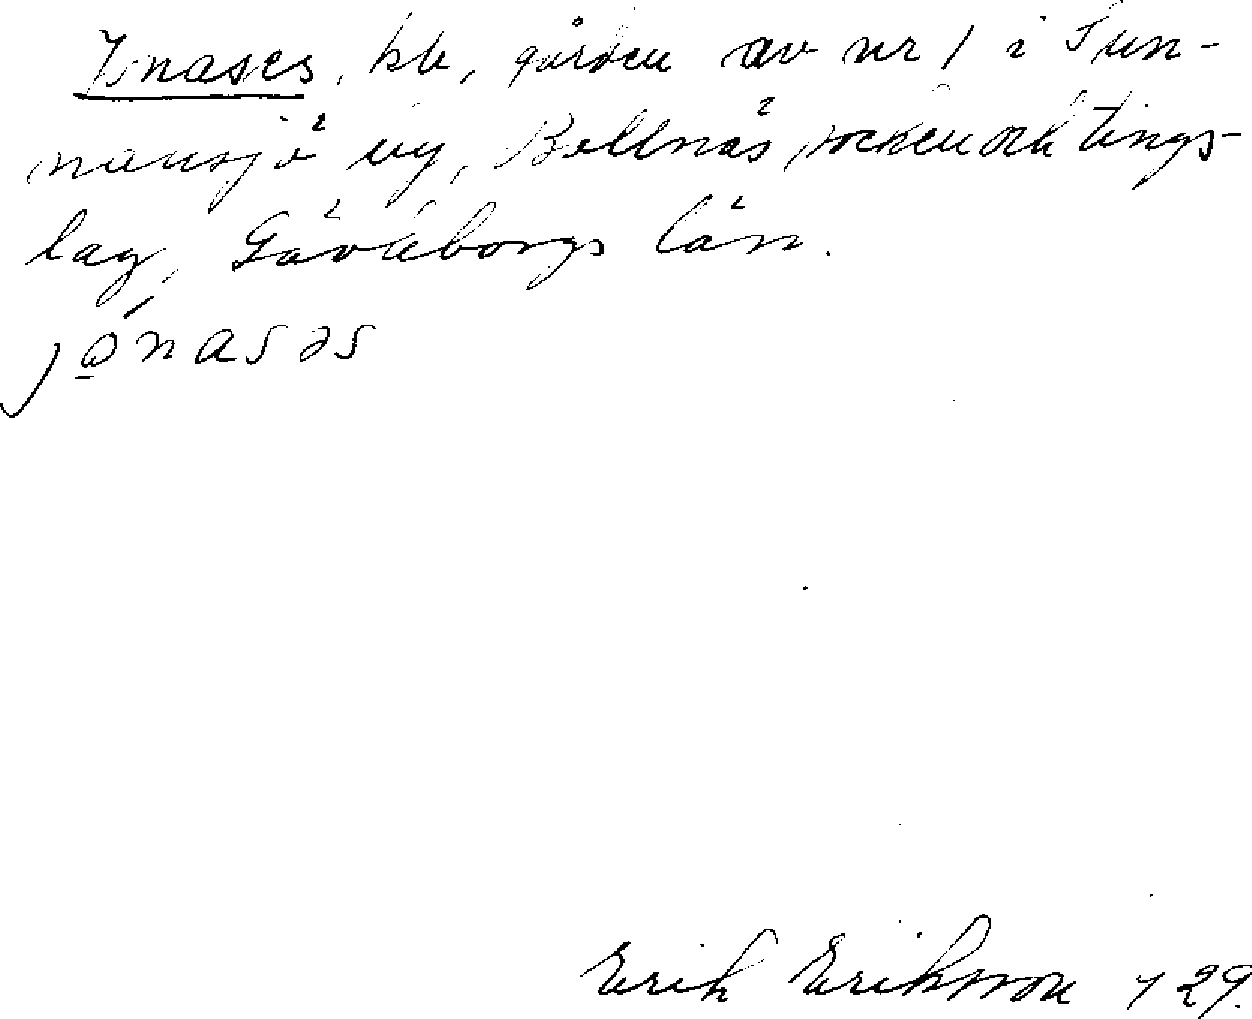 Jonases, hb, gården av nr 1 i Sun-
nansjö by, Bollnäs socken och tings-
lag, Gävleborgs län.
jó̲nasəs
Erik Eriksson 29.